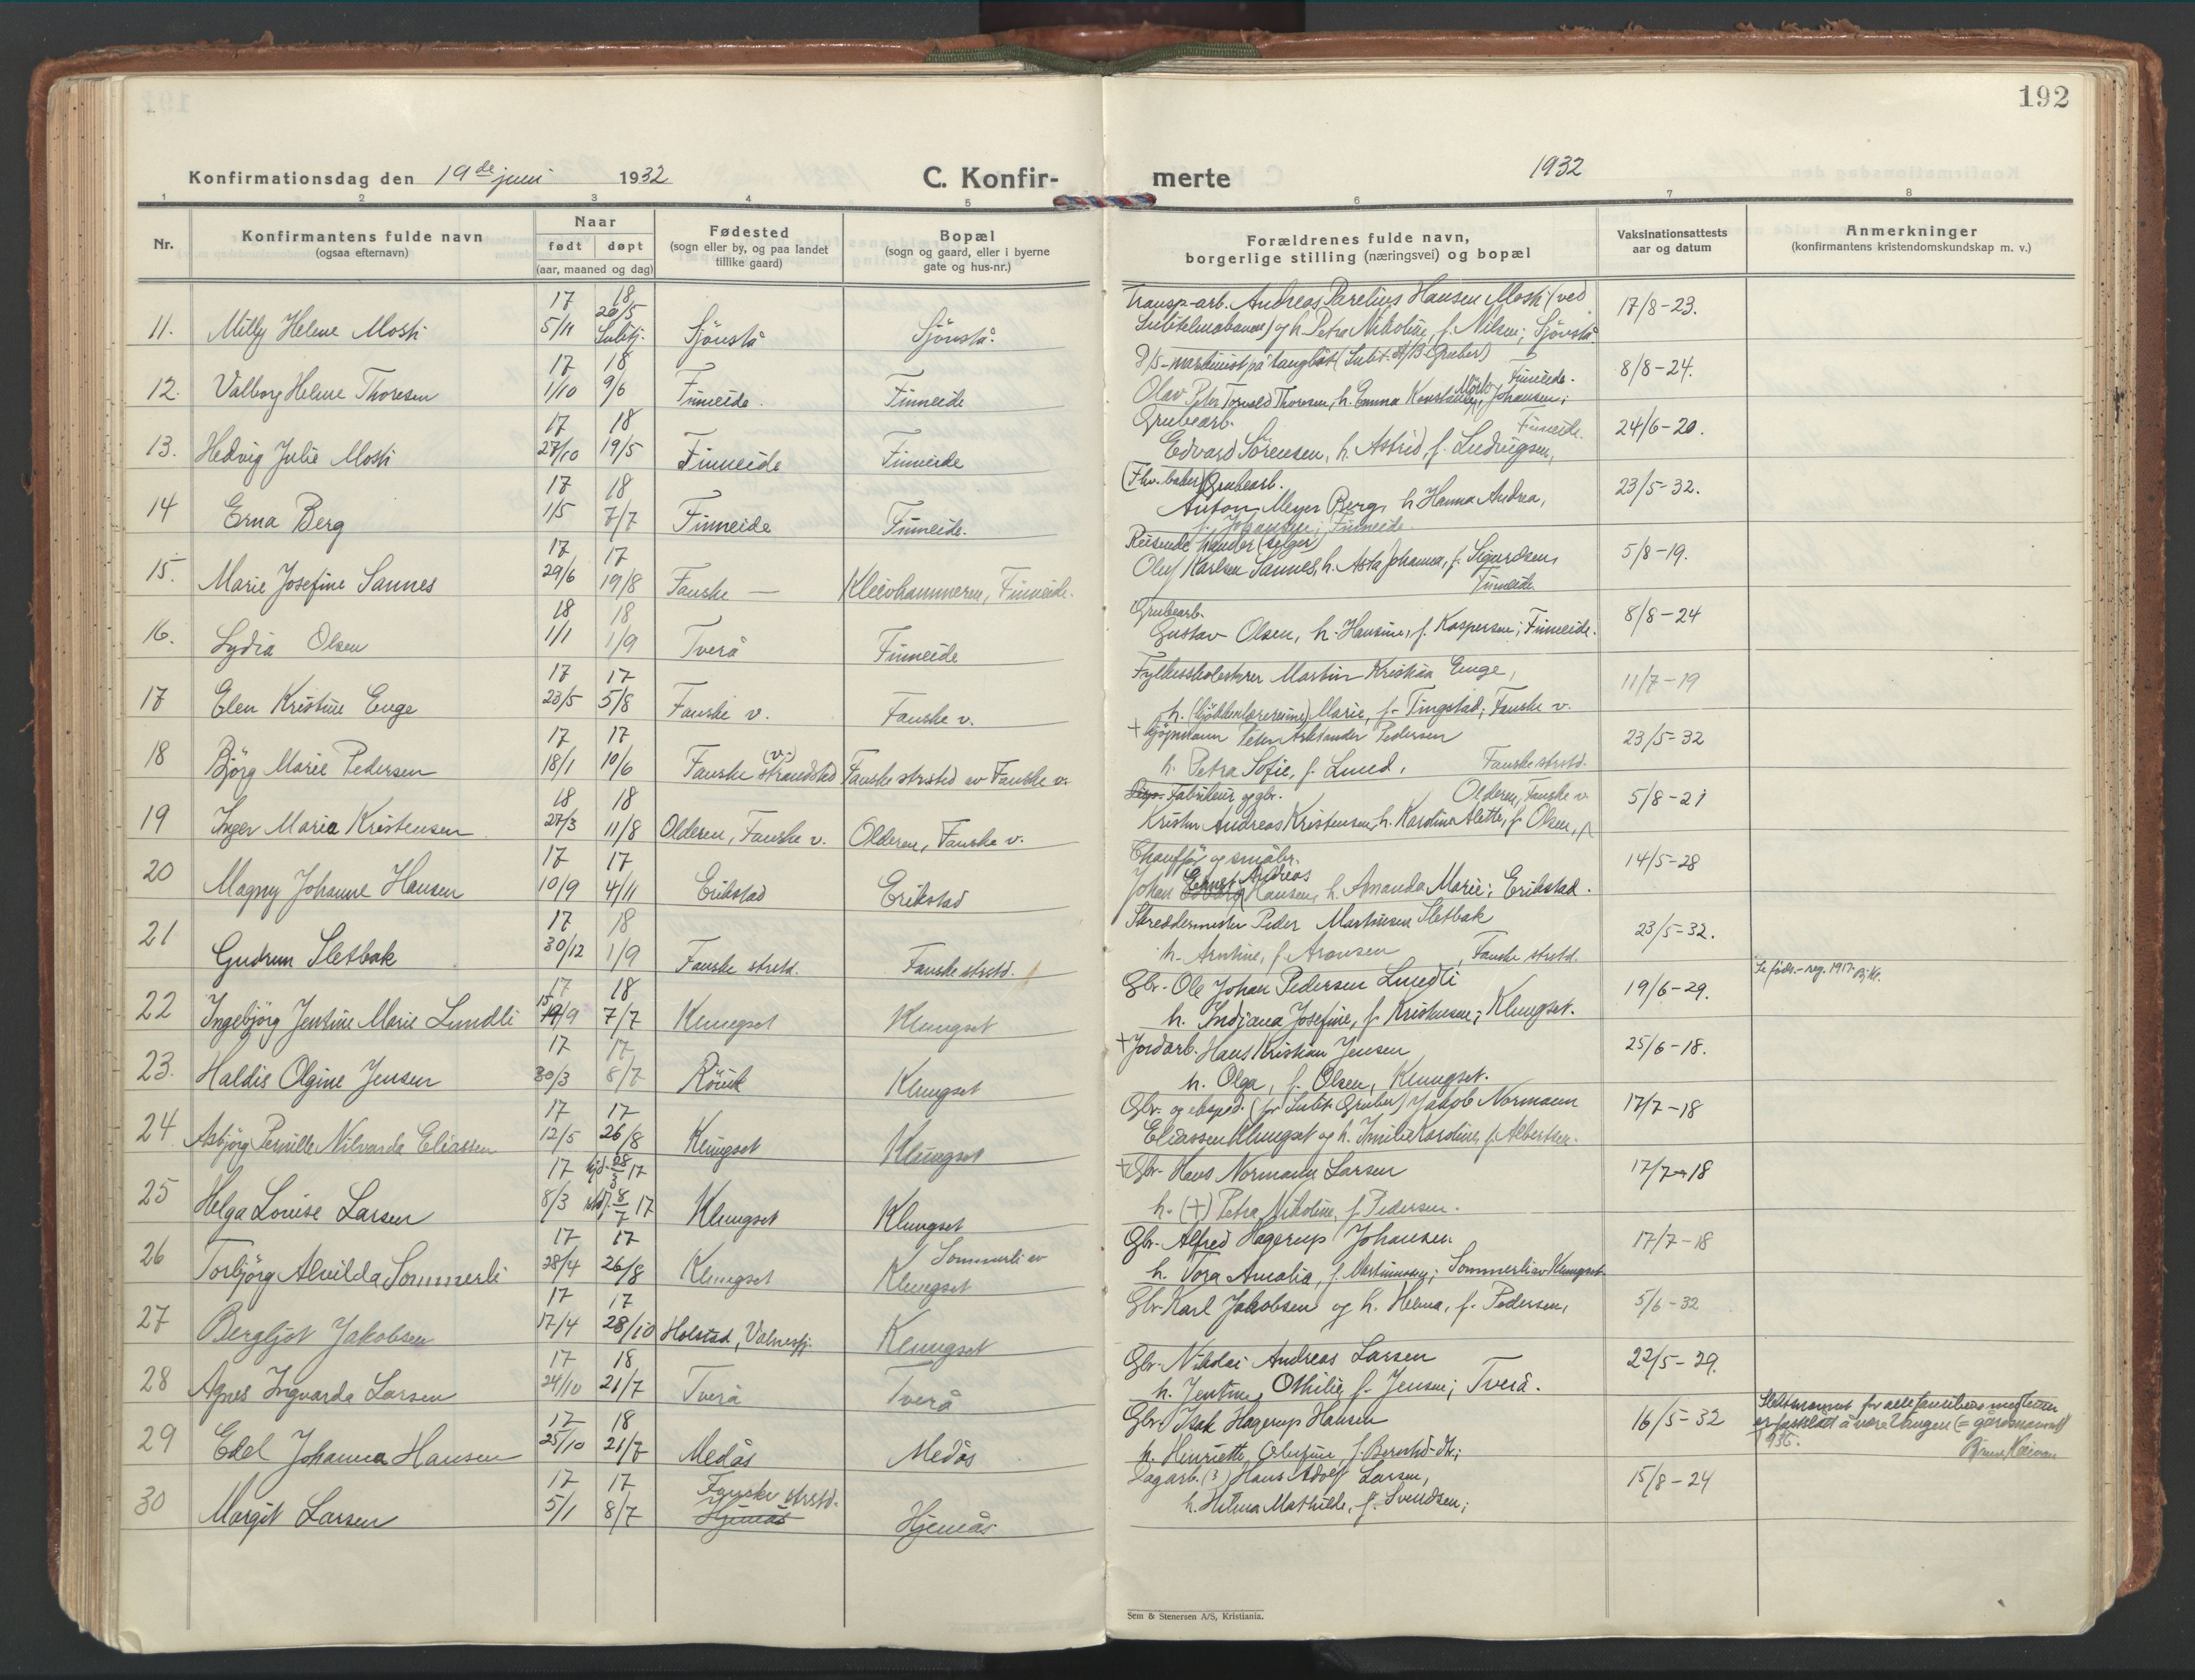 192
Konfirmationsdag den 19de juni 1932
C. Konfir-
merte
1932
1 2 3 4 5 6 7 8
Nr.
Konfirmantens fulde navn
(ogsaa efternavn)
Naar
født døpt
(aar, maaned og dag)
Fødested
(sogn eller by, og paa landet
tillike gaard)
Bopæl
(sogn og gaard, eller i byerne
gate og hus-nr.)
Forældrenes fulde navn,
borgerlige stilling (næringsvei) og bopæl
Vaksinationsattests
aar og datum
Anmerkninger
(konfirmantens kristendomskundskap m. v.)
17 18
11. Milly Helene Mosti 5/11 26/5 Sulitj. Sjönstå Sjönstå.
Transp-arb. Andreas Parelius Hansen Mosti (ved
Sulitelmabanen) og h. Petra Nikoline, f. Nilsen; Sjönstå
17/8-23.
17 18
12. Valborg Helene Thoresen 1/10 9/6 Finneide. Finneide
D/S-maskinist på taugbåt (Sulit. A/B Gruber)
Olav Peter Torvald Thoresen, h. Emma Konstanse, Johansen; Finneide.
8/8-24.
17 18
13. Hedvig Julie Mosti 27/10 19/5 Finneide Finneide
Grubearb. Finneide.
Edvard Sörensen, h. Astrid, f. Ludvigsen,
24/6-20.
17 18
14 Erna Berg 1/5 7/7 Finneide Finneide.
(Fhv. baker) Grubearb.
Anton Meyer Berg, h Hanna Andrea,
f. Johansen; Finneide.
23/5-32.
17 17
15. Marie Josefine Sannes 29/6 19/8 Fauske — Kleivhammeren, Finneide.
Reisende handler (selger)
Oluf Karlsen Sannes, h. Asta Johanna, f. Sigurdsen,
Finneide
5/8-19.
18 18
16. Lydia Olsen 1/1 1/9 Tverå Finneide
Grubearb.
Gustav Olsen, h. Hansine, f. Kaspersen; Finneide.
8/8-24
17 17
17 Elen Kristine Enge 23/5 5/8 Fauske v. Fauske v.
Fylkesskolestyrer Martin Kristian Enge,
h. (kjökkenlærerinne) Marie, f. Tingstad; Fauske v.
11/7-19
17 17
18 Björg Marie Pedersen 18/1 10/6 Fauske (v.) strandsted Fauske strsted av Fauske v.
+ Kjöpmann Peter Arksander Pedersen
h. Petra Sofie, f. Lund, Fauske strstd.
23/5-32
18 18
19 Inger Maria Kristensen 27/3 11/8 Olderen, Fauske v. Olderen, Fauske v.
Fabrikeur og gbr. Olderen, Fauske v.
Krister Andreas Kristensen, h. Karoline Alette, f. Olsen,
5/8-21
17 17
20 Magny Johanne Hansen 10/9 4/11 Erikstad Erikstad
Chauffør og småbr.
Johan Andreas Hansen, h. Amanda Marie; Erikstad.
14/5-28
17 18
21 Gudrun Sletbak 30/12 1/9 Fauske strstd. Fauske strstd.
Skreddermester Peder Martinsen Sletbak
h. Arntine, f. Aronsen, Fauske strstd.
23/5-32.
17 18
22 Ingebjörg Jentine Marie Lundli 15/9 7/7 Klungset Klungset
Gbr. Ole Johan Pedersen Lundli
h. Indiana Josefine, f. Kristensen; Klungset.
19/6-29.
Se føds.-reg. 1917 Bj.Kl.
17 17
23. Haldis Olgine Jensen 30/3 8/7 Rövik Klungset
+Jordarb. Hans Kristian Jensen
h. Olga, f. Olsen, Klungset.
25/6-18.
17 17
24 Asbjörg Pernille Nilvarda Eliassen 12/5 26/8 Klungset Klungset
Gbr. og eksped. (for Sulit. Gruber) Jakob Normann
Eliassen Klungset og h. Emilie Karoline, f. Albertsen.
17/7-18
17 Hjd. 28/3 17
25 Helga Louise Larsen 8/3 8/7 17 Klungset Klungset
+Gbr. Hans Normann Larsen
h. (+) Petra Nikoline, f. Pedersen.
17/7-18
17 17
26 Torbjörg Alvilda Sommerli 28/4 26/8 Klungset Sommerli av Klungset
Gbr. Alfred Hagerup Johansen
h. Tora Amalia, f. Martinussen; Sommerli av Klungset.
17/7-18
17 17
27 Bergljot Jakobsen 17/4 28/10 Holstad, Valnesfj. Klungset
Gbr. Karl Jakobsen og h. Helma, f. Pedersen,
5/6-32
17 18
28 Agnes Ingvarda Larsen 24/10 21/7 Tverå Tverå
Gbr. Nikolai Andreas Larsen
h. Jentine Othilie f. Jensen; Tverå.
22/5-29.
17 18
29 Edel Johanna Hansen 25/10 21/7 Medås Medås
Gbr. Isak Hagerup Hansen
h. Henriette Olufine, f. Berntsd-dtr.;
16/5-32
Slektsnavnet for alle familiens medlemmer
er fastslått å være Vangen (= gårdsnavnet)
1935.
17 17
30 Margit Larsen 5/1 8/7 Fauske strstd. Hjemås Hjemås
Dagarb. (3) Hans Adolf Larsen,
h. Hilma Mathilde, f. Svendsen;
15/8-24
Sem & Stenersen A/S, Kristiania.